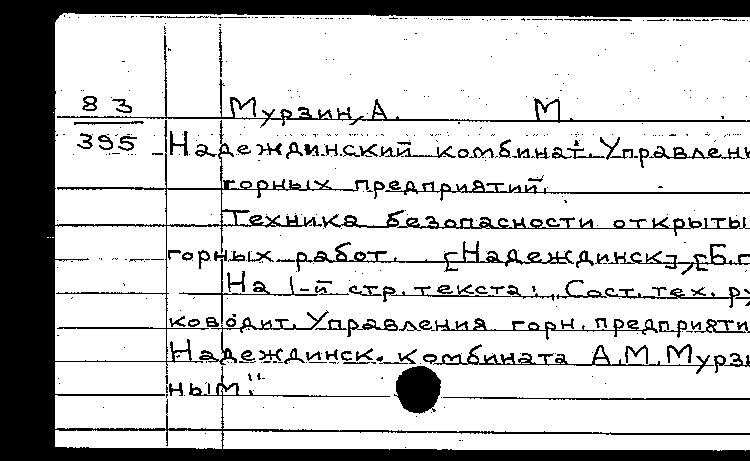 83
395
Мурзин, А. М.
Надеждинский комбинат. Управлени
горных предприятий.
Техника безопасности открыты
горных работ. [Надеждинск], [Б.г
На 1-й стр. текста: „Сост. тех. ру
ководит. Управления горн. предприяти
Надеждинск. комбината А.М. Мурзи
ным".